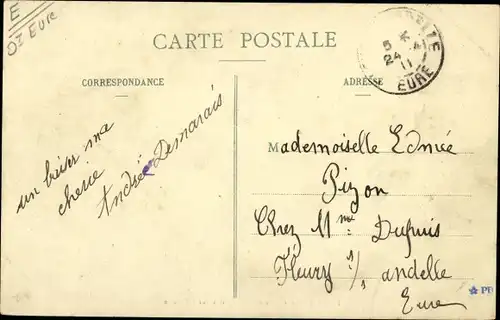 E
OZ EURE
CARTE POSTALE
CORRESPONDANCE
ADRESSE
5
24
11
EURE
un baiser ma
cherie
Andrée Demarais
Mademoiselle Edmée
Pizon
Chez Mme Dupuis
Fleury s/s andelle
Eure